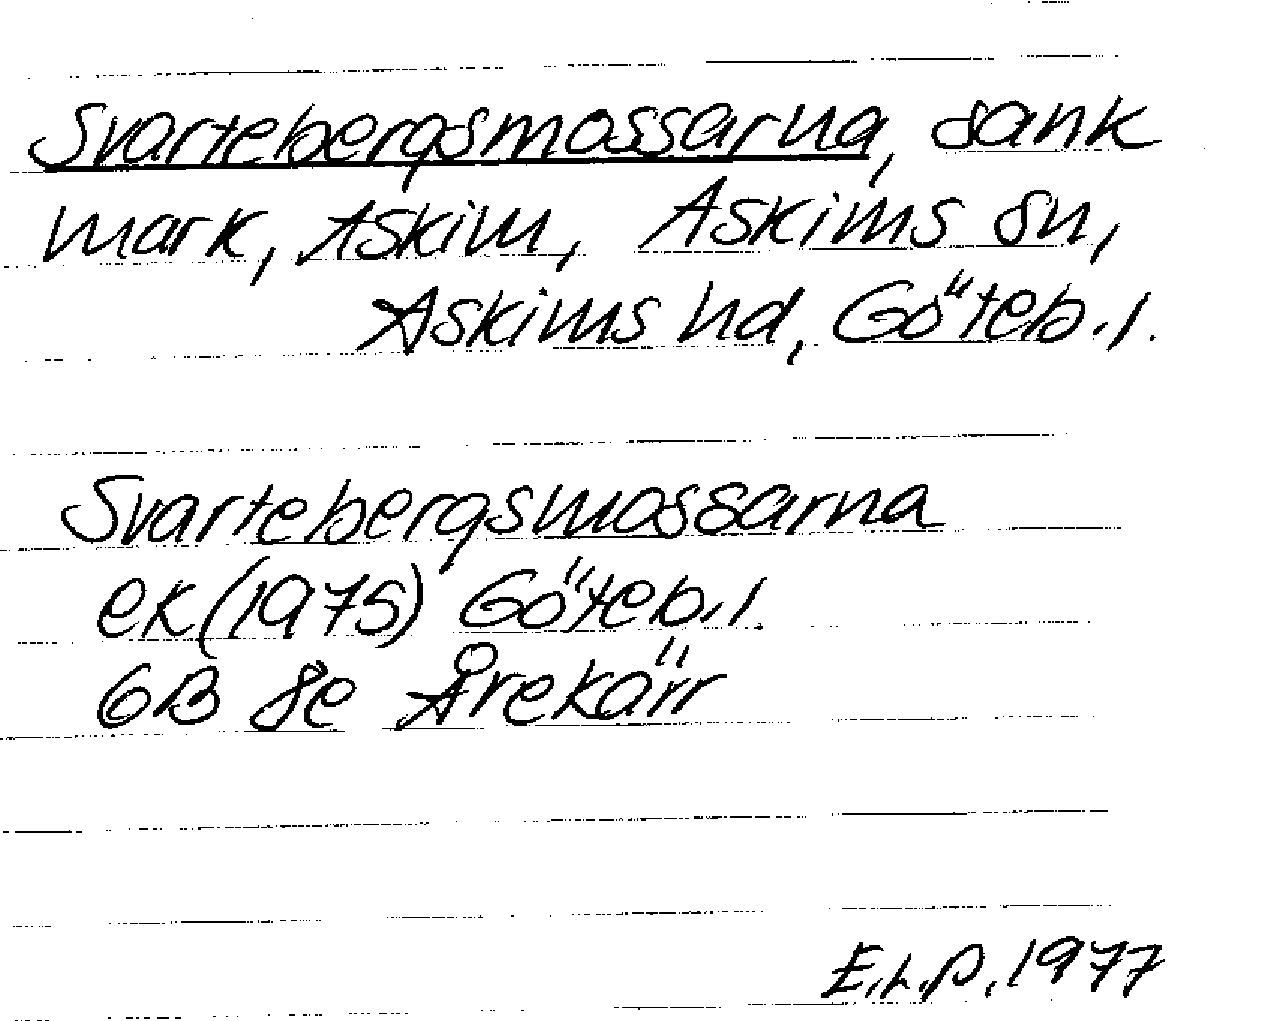 Svartebergsmossarna, sank
mark, Askim, Askims sn,
Askims hd, Göteb.l.
Svartebergsmossarna
ek (1975) Göteb.l.
6B 8e Årekärr
E.L.P. 1977